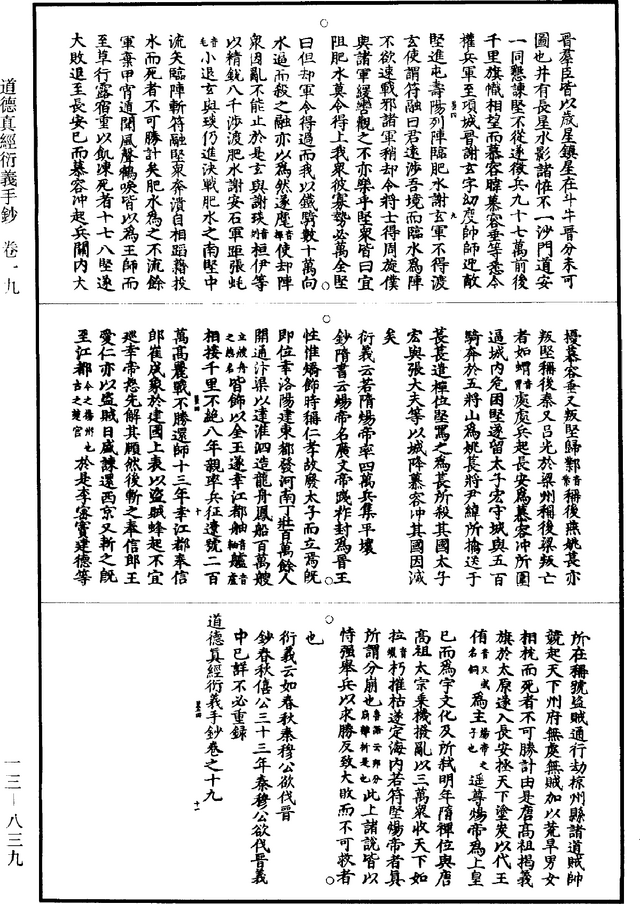 晉羣臣皆以歲星鎮星在斗牛晉分未可
圖也并有長星水影諸恠不一沙門道安
一同懇諫堅不從遂徵兵九十七萬前後
千里旗幟相望而慕容暐慕容垂等悉令
權兵軍至項城晉謝玄字幼度帥師迎敵
堅進屯壽陽列陣臨肥水謝玄軍不得渡
玄使謂符融曰君遠涉吾境而臨水為陣
不欲速戰邪諸軍稍却令將士得周旋僕
與諸軍緩轡觀之不亦樂乎堅衆皆曰宜
阻肥水莫令得上我衆彼寡勢必萬全堅
曰但却軍令得過而我以鐵騎數十萬向
水逼而殺之融亦以為然遂麾使却陣
衆因亂不能止於是玄與謝琰桓伊等
以精銳八千涉渡肥水謝安石軍距張蚝
小退玄與琰仍進決戰肥水之南堅中
流矢臨陣斬符融堅衆奔潰自相蹈籍投
水而死者不可勝計矣肥水為之不流餘
軍棄甲宵遁聞風聲鶴唳皆以為王師而
至草行露宿重以飢凍死者十七八堅遂
大敗退至長安已而慕容沖起兵關内大
擾慕容垂又叛堅歸鄴稱後燕姚萇亦
叛堅稱後秦又吕光於梁州稱後梁叛亡
者如蝟處處兵起長安為慕容沖所圍
逼城内危困堅遂留太子宏守城與五百
騎奔於五將山為姚萇將尹緯所擒送于
萇萇遣禪位堅罵之為萇所殺其國太子
宏與張大夫等以城降慕容沖其國因滅
矣
衍義云若隋煬帝率四萬兵集平壤
鈔隋書云煬帝名廣文帝踐祚封為晉王
性惟矯飾時稱仁孝故廢太子而立焉旣
即位幸洛陽建東都發河南丁壯百萬餘人
開通汴渠以達淮泗造龍舟鳳船百萬艘
皆飾以金玉遂幸江都舳艫
相接千里不絶八年親率兵征遼號二百
萬高麗戰不勝還師十三年幸江都奉信
郎崔成象於建國上表以盜賊蜂起不宜
廵幸帝怒先解其頤然後斬之奉信郎王
愛仁亦以盜賊日盛諫還西京又斬之旣
至江都於是李密竇建德等
所在稱號盜賊通行劫掠州縣諸道賊帥
競起天下州府無處無賊加以荒旱男女
相枕而死者不可勝計由是唐高祖揭義
旗於太原遂入長安拯天下塗炭以代王
侑為主遥尊煬帝為上皇
已而為宇文化及所弑明年隋禪位與唐
高祖太宗乗機撥亂以三萬衆收天下如
拉朽摧枯遂定海内若符堅煬帝者真
所謂分崩也此上諸說皆以
恃强舉兵以求勝反致大敗而不可救者
也
衍義云如春秋秦穆公欲伐晉
鈔春秋僖公三十三年秦穆公欲伐晉義
中已詳不必重録
道德真經衍義手鈔卷之十九
道德真經衍義手鈔 卷一九
一三—八三九